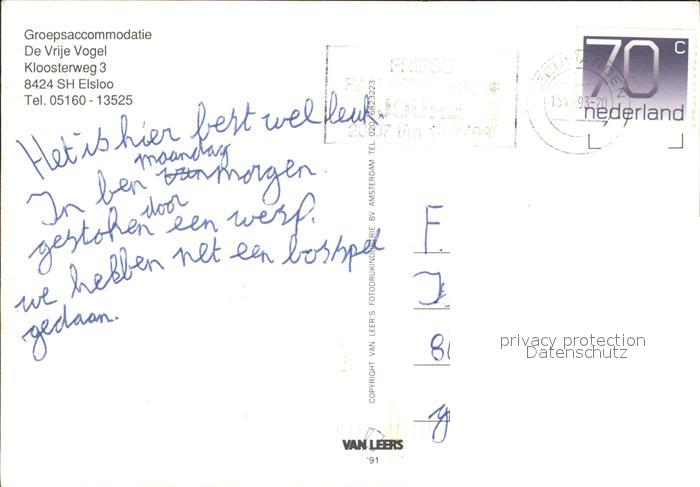 Groepsaccommodatie
De Vrije Vogel
Kloosterweg 3
8424 SH Elsloo
Tel. 05160 - 13525
70 c
nederland
FRIESE
Het is hier best wel leuk.
In ben maandag morgen.
gestoken door een wesp.
we hebben net een bosspel
gedaan.
COPYRIGHT VAN LEER'S FOTODRUKINDUSTRIE BV AMSTERDAM TEL.
F.
J.
privacy protection
Datenschutz
VAN LEERS
'91